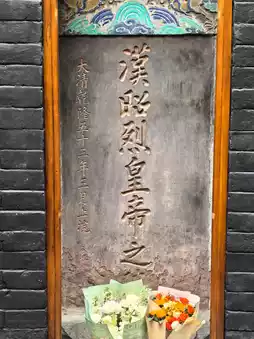 漢昭烈皇帝之
大清乾隆五十三年二月上浣